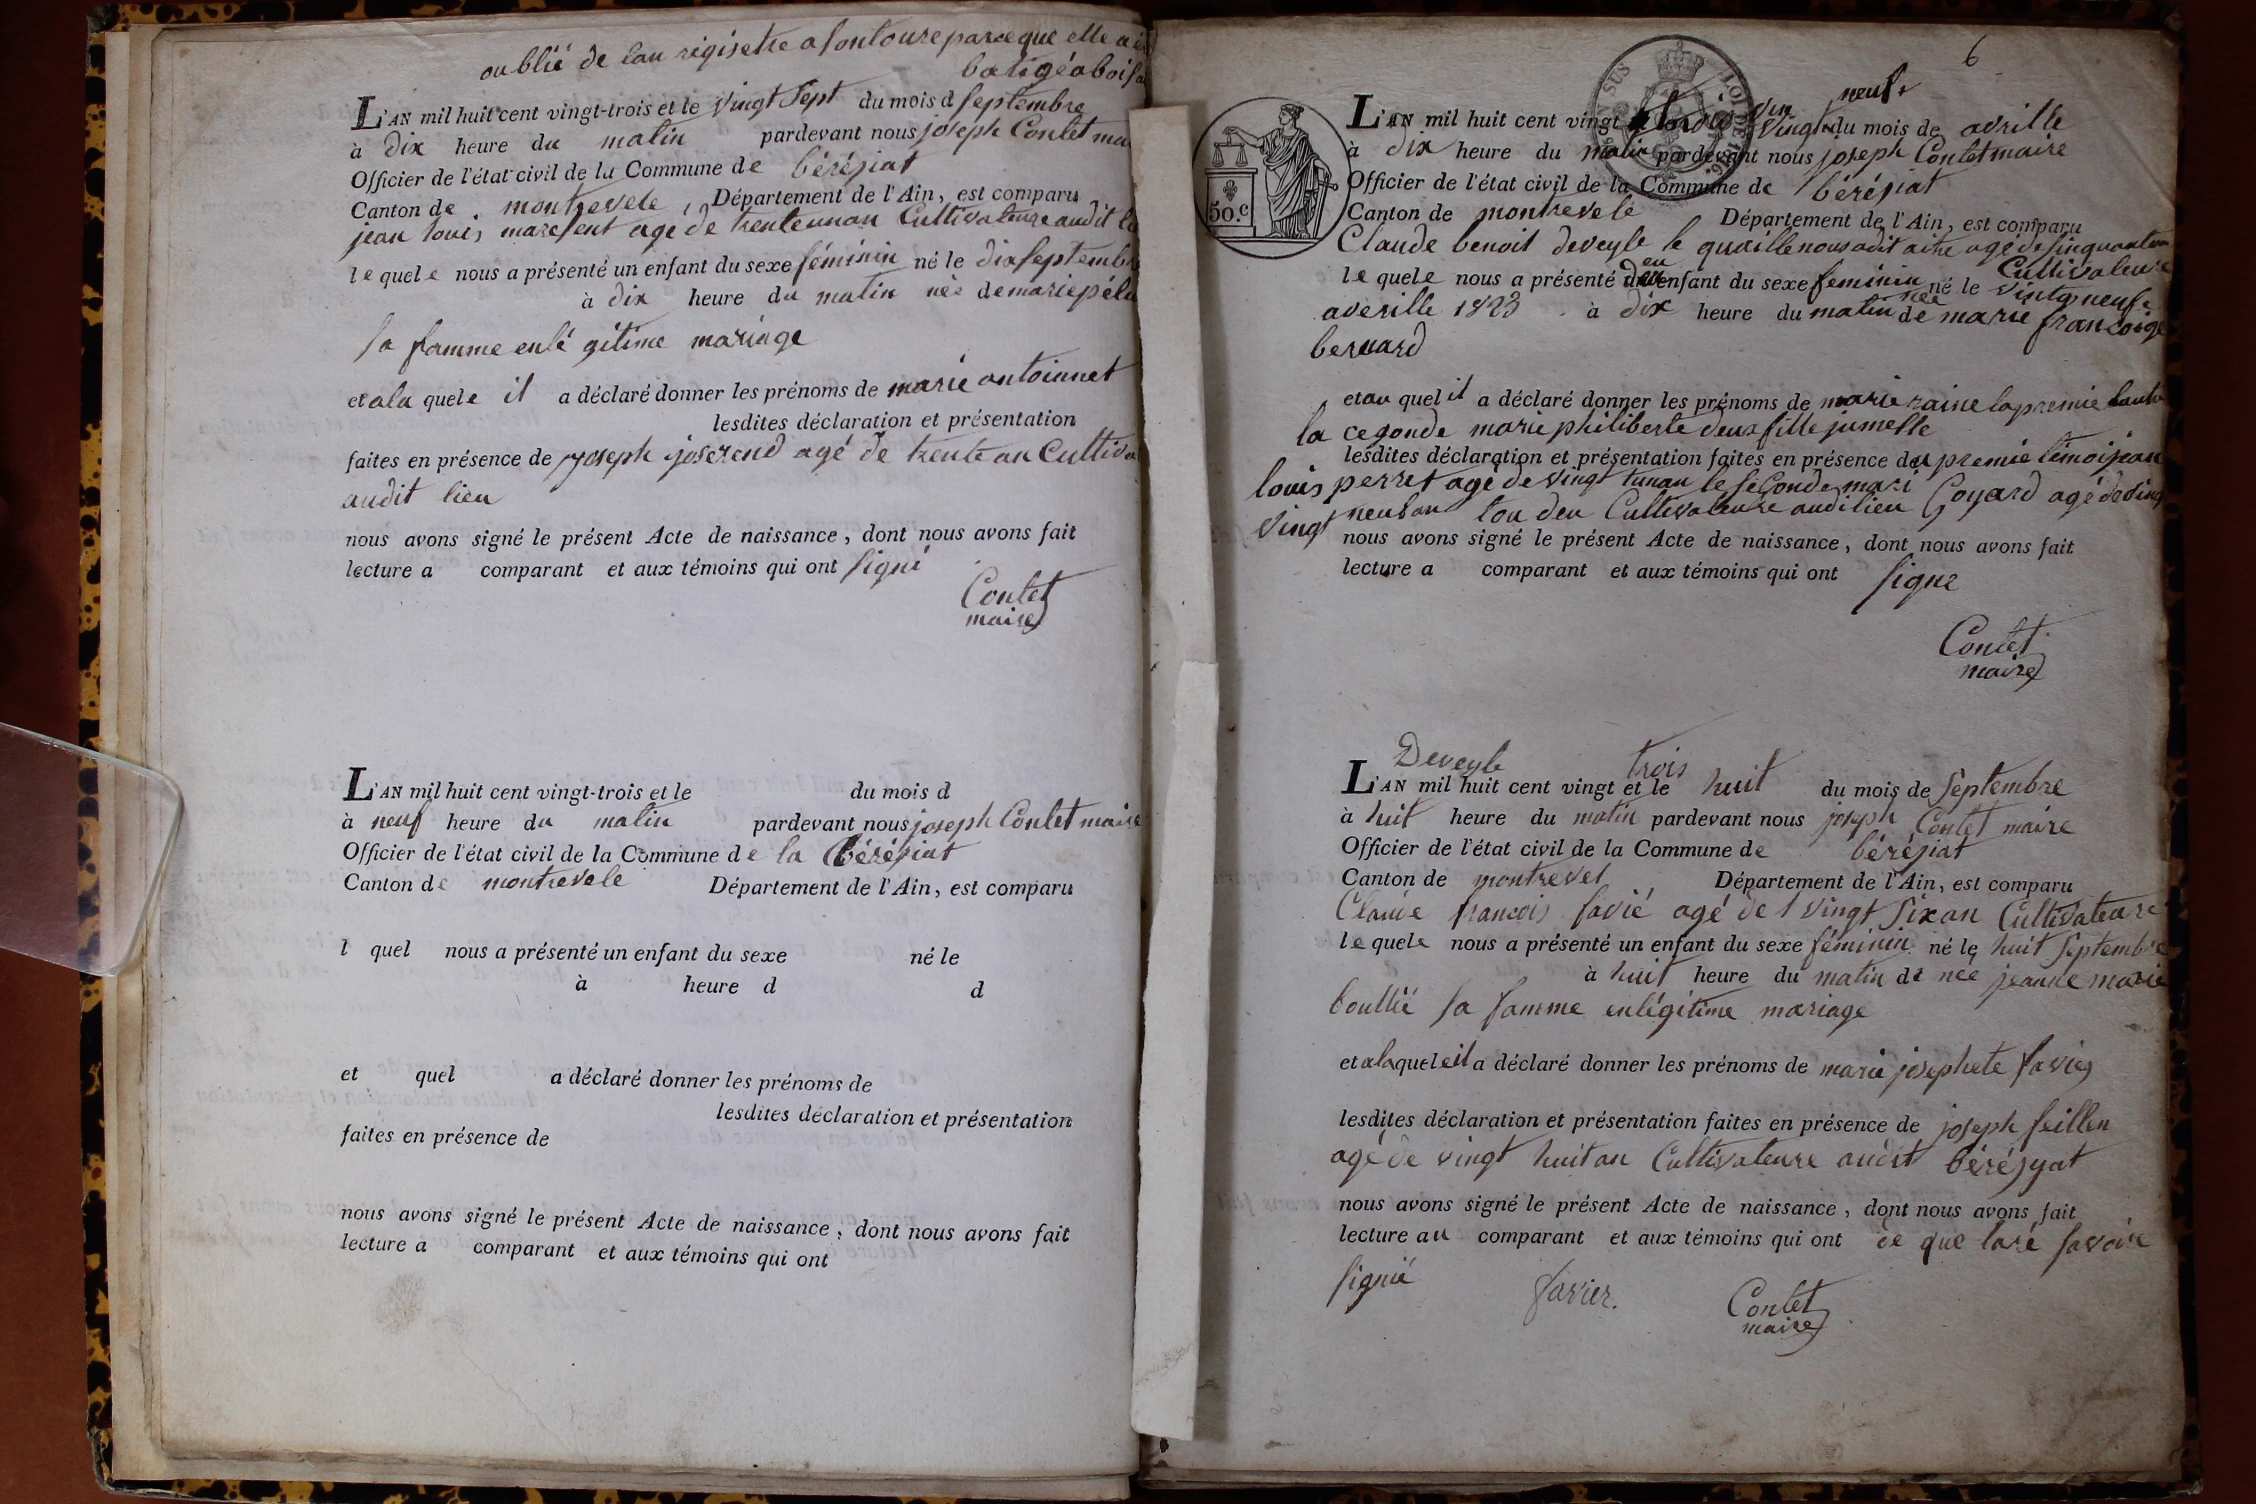 oublié de lau régisetre a son toure parce que elle a é
batigé a boisa
L'AN mil huit cent vingt-trois et le vingt sept du mois d septembre
à dix heure du matin pardevant nous joseph Contet mai
Officier de l'état civil de la Commune de béréziat
Canton de montrevele, Département de l'Ain, est comparu
jean louis maresent agé de trente unan Cultivateure audit li
le quele nous a présenté un enfant du sexe féminin né le dix septembre
à dix heure du matin née de marie péla
sa famme en lé gitime mariage
et a la quele il a déclaré donner les prénoms de marie antoinnet
lesdites déclaration et présentation
faites en présence de joseph joserend agé de trente an Cultiva
audit lieu
nous avons signé le présent Acte de naissance, dont nous avons fait
lecture a comparant et aux témoins qui ont signé
Contet
maire
L'AN mil huit cent vingt-trois et le du mois d
à neuf heure du matin pardevant nous joseph Contet maire
Officier de l'état civil de la Commune de la béréziat
Canton de montrevele Département de l'Ain, est comparu
l quel nous a présenté un enfant du sexe né le
à heure d d
et quel a déclaré donner les prénoms de
lesdites déclaration et présentation
faites en présence de
nous avons signé le présent Acte de naissance, dont nous avons fait
lecture a comparant et aux témoins qui ont
6
neuf
L'AN mil huit cent vingt trois vingt du mois de avrille
à dix heure du matin pardevant nous joseph Contet maire
Officier de l'état civil de la Commune de béréziat
Canton de montrevele Département de l'Ain, est comparu
50.c
LOI DE 1816.
Claude benoit deveyle le quaille nous a dit aitre agé de sinquante
Cultivateure
le quele nous a présenté deu enfant du sexe feminin né le vintg neuf
averille 1823 à dix heure du matin née de marie francoige
bernard
et au quel il a déclaré donner les prénoms de marie raine la premie lautre
la cegonde marie philiberte deux fille jumelle
lesdites déclaration et présentation faites en présence de premie témoi jean
louis perret agé de vingt tunan le segonde mari Goyard agé de vingt
vingt neuf an tou deu Cultivateure audi lieu
nous avons signé le présent Acte de naissance, dont nous avons fait
lecture a comparant et aux témoins qui ont signe
Contet
maire
Deveyle
trois
L'AN mil huit cent vingt et le huit du mois de Septembre
à huit heure du matin pardevant nous joseph Contet maire
Officier de l'état civil de la Commune de béréziat
Canton de montrevel Département de l'Ain, est comparu
Claude francois favié agé de vingt six an Cultivateure
le quele nous a présenté un enfant du sexe féminin né le huit Septembre
à huit heure du matin de née jeanne marie
boullié sa famme en légitime mariage
et a la quele il a déclaré donner les prénoms de marie josephete favies
lesdites déclaration et présentation faites en présence de joseph feillen
agé de vingt huit an Cultivateure audit béréziat
nous avons signé le présent Acte de naissance, dont nous avons fait
lecture au comparant et aux témoins qui ont de que laré savoire
signié
favier.
Contet
maire